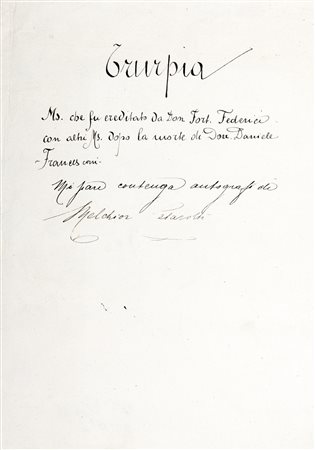 Turpia
Ms. che fu ereditato da Don Fort. Federici
con altri Ms. dopo la morte di Don Daniele
Francesconi.
Mi pare contenga autografi di
Melchior